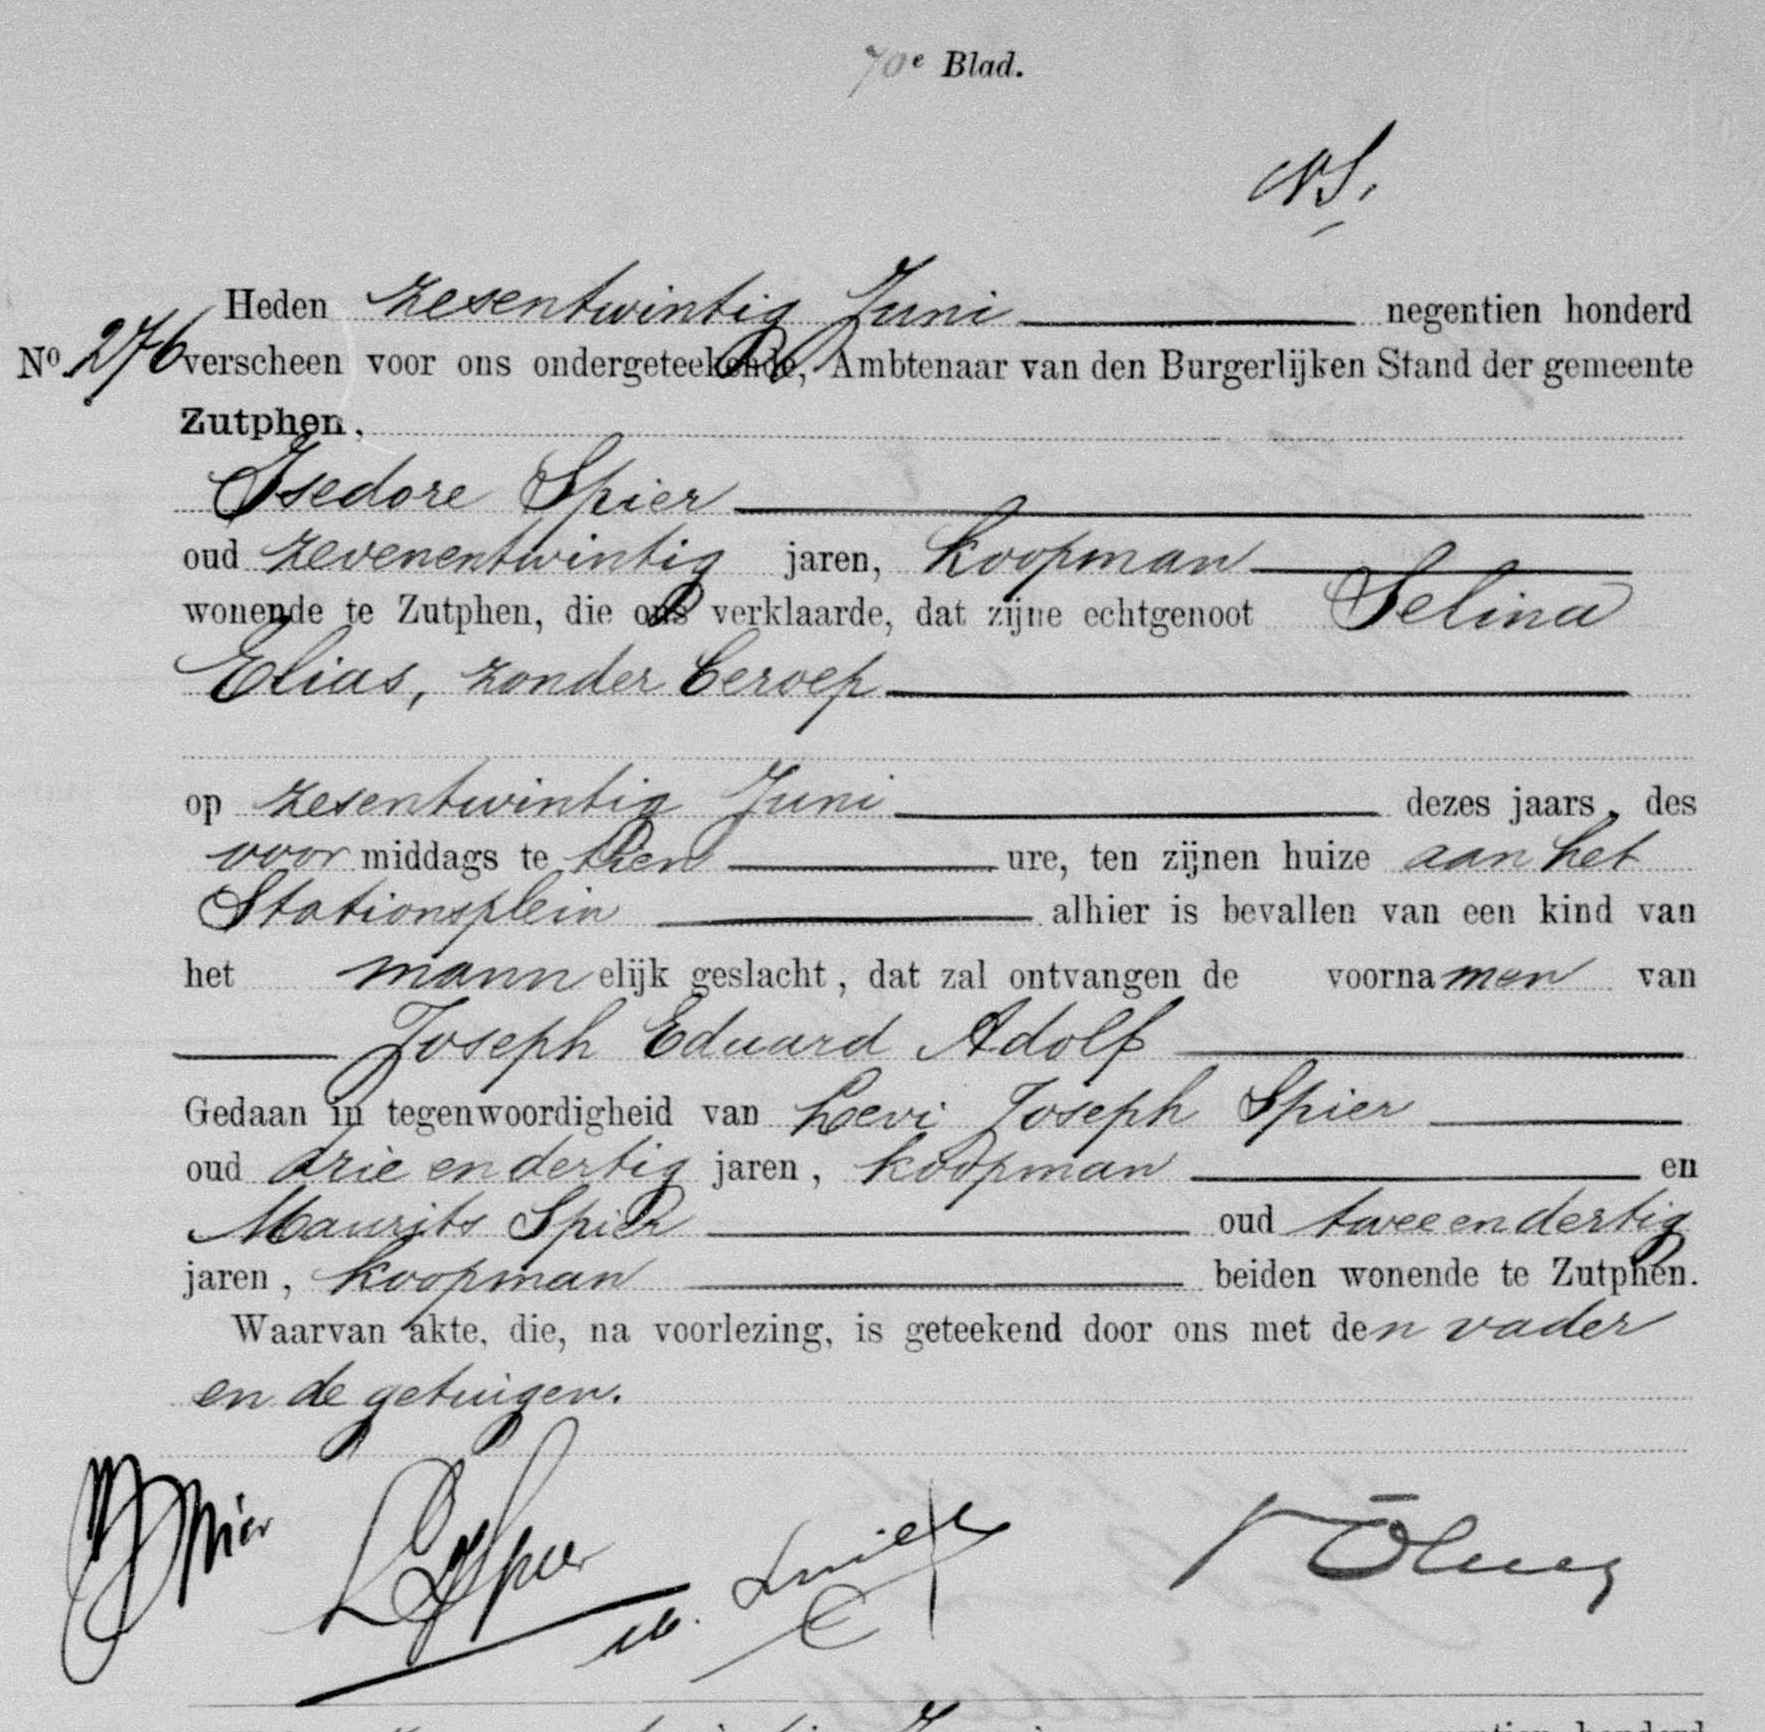 70e Blad.
NS.
Heden zesentwintig Juni negentien honderd
No. 276 verscheen voor ons ondergeteekende, Ambtenaar van den Burgerlijken Stand der gemeente
Zutphen,
Isedore Spier
oud zevenentwintig jaren, koopman
wonende te Zutphen, die ons verklaarde, dat zijne echtgenoot Selina
Elias, zonder beroep
op zesentwintig Juni dezes jaars, des
voor middags te tien ure, ten zijnen huize aan het
Stationsplein alhier is bevallen van een kind van
het mannelijk geslacht, dat zal ontvangen de voornamen van
Joseph Eduard Adolf
Gedaan in tegenwoordigheid van Levi Joseph Spier
oud drie en dertig jaren, koopman en
Maurits Spier oud twee en dertig
jaren, koopman beiden wonende te Zutphen.
Waarvan akte, die, na voorlezing, is geteekend door ons met den vader
en de getuigen.
Spier LJSpier